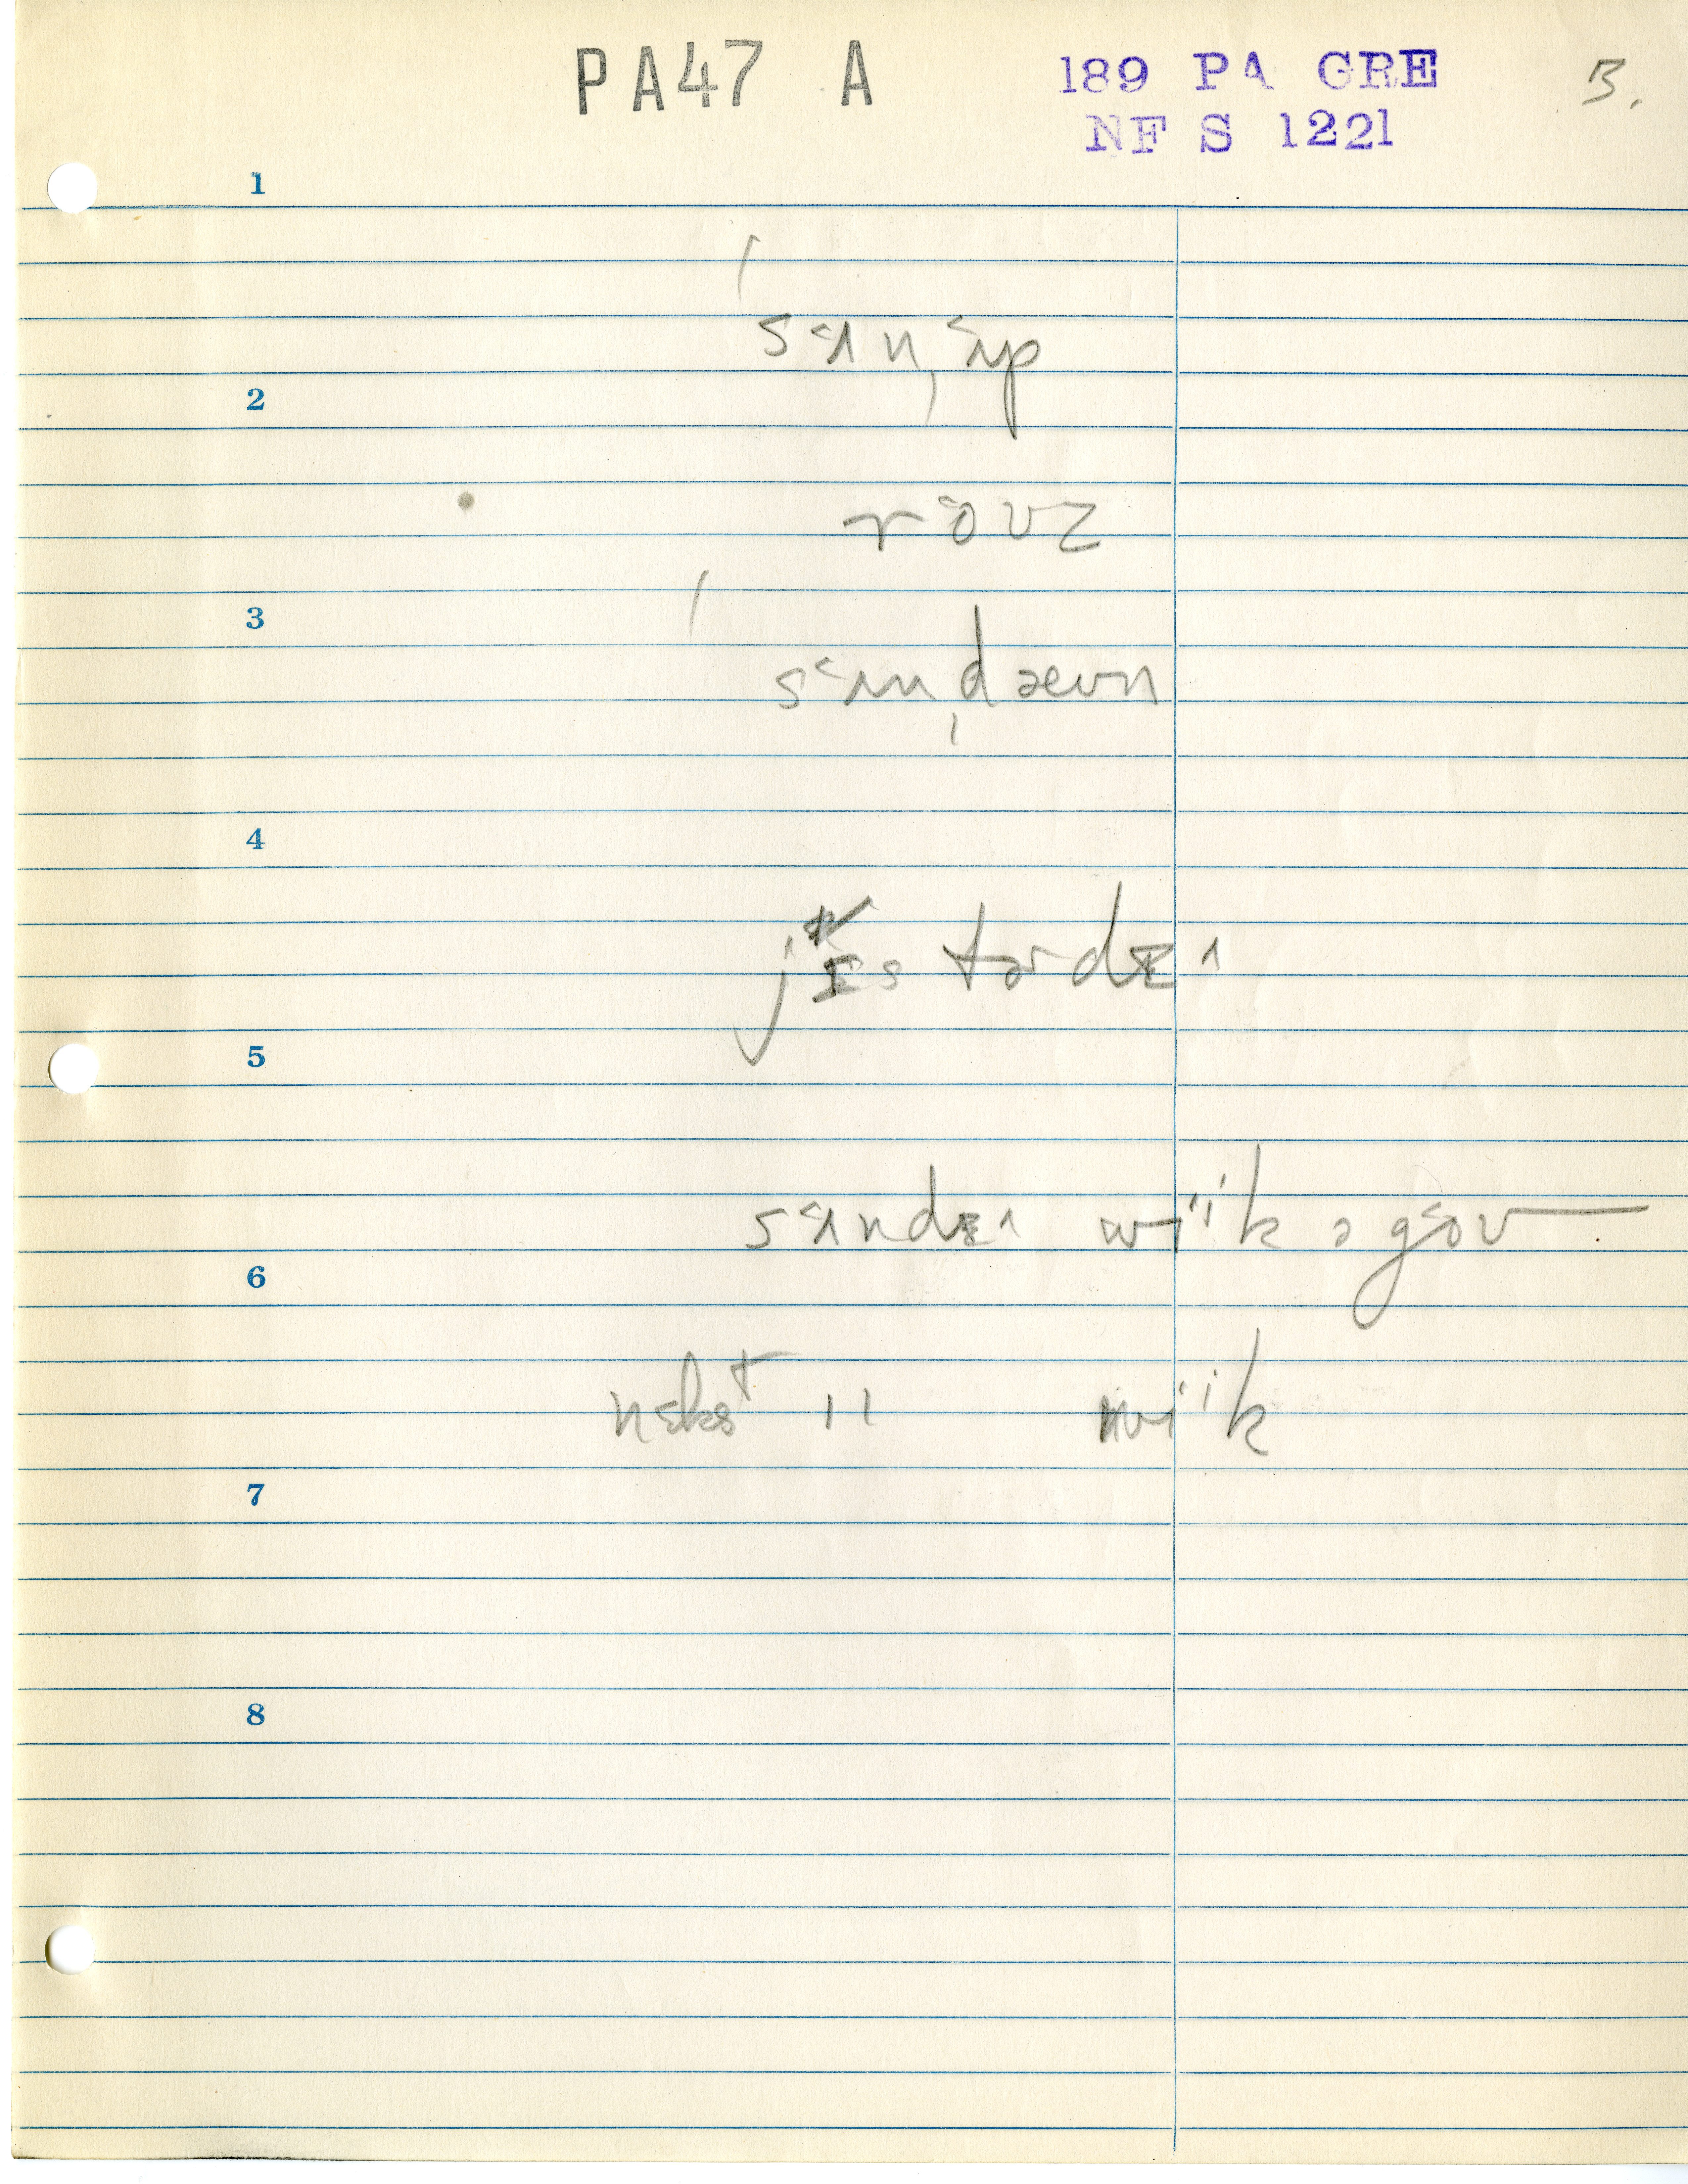 PA47 A 189 PA GRE 3.
NF S 1221
1
sʌn, ʌp
2
roʊz
3
sʌn, dæʊn
4
jɪstərdɪ
5
sʌndɪ wiik əgoʊ
6
nɛkst " wiik
7
8